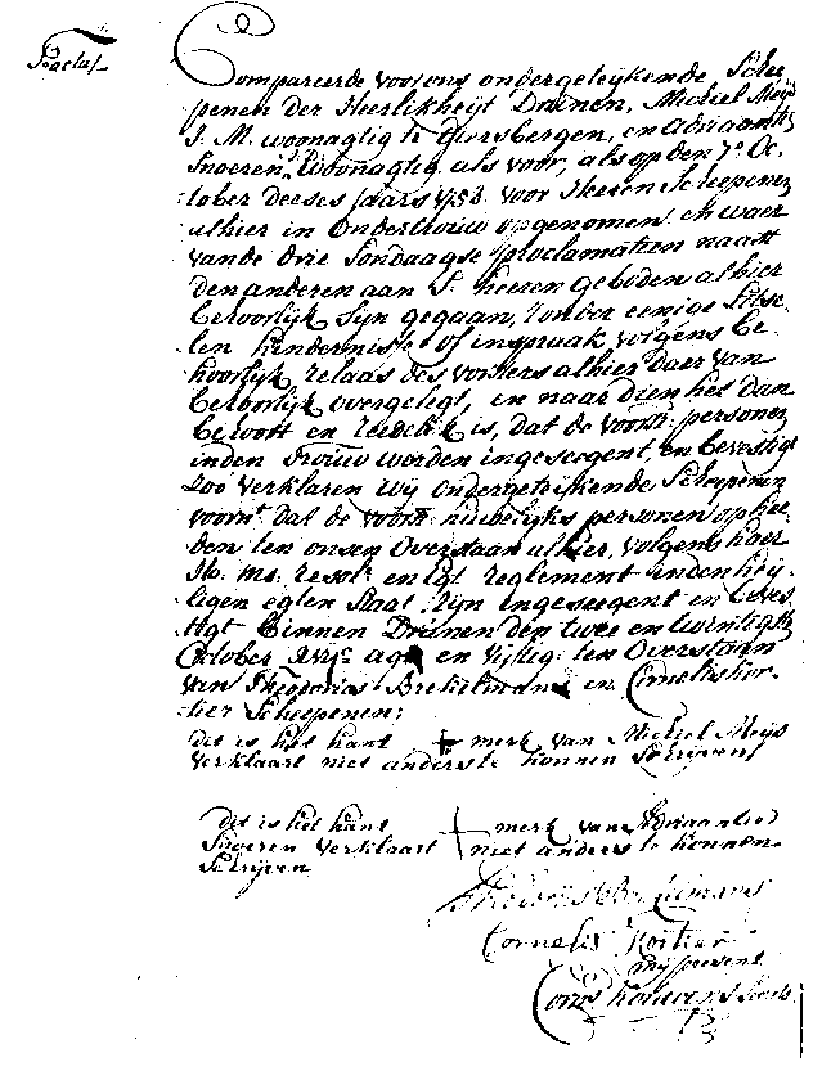 Compareerde voor ons ondergeteijkende Schee
penen der Heerlikheijt Drunen, Michiel Meijs
J. M. woonagtig te Giersbergen, en Adriaantie
Snoeren, woonagtig als voor, als op den 7e Oc
tober deeses jaars 1758 voor Heeren Scheepenen
alhier in ondertrouw opgenomen, en waer
vande drie Sondaagse proclamatien naast
den anderen aan S. heeren geboden alhier
behoorlijk sijn gegaan, sonder eenige
hindernisse of inspraak volgens be
hoorlijk relaas des vorsters alhier daer van
behoorlijk overgelegt, en naar dien het dan
behoort en reedelik is, dat de voorn: persoonen
inden Trouw worden ingeseegent, en bevestigt
Zoo verklaren wij ondergeteijkende Scheepenen
voornt dat de voorn: huwelijks persoonen op hee
den ten onsen overstaan alhier, volgens haer
Ho. Mo. resolt en Egt reglement inden hey
ligen egten Staat sijn ingeseegent en beves
tigt binnen Drunen den twee en twintigste
October XVIJc agt en vijftig: ten overstaan
van Theodorus Brekelmans en Cornelis Kor
tier Scheepenen;
dit is het hant + merk van Michiel Meijs
verklaart niet anders te konnen Schrijven
dit is het hant + merk van Adriaantie
Snoeren verklaart niet anders te konnen
Schrijven
Cornelis Kortier
mij present